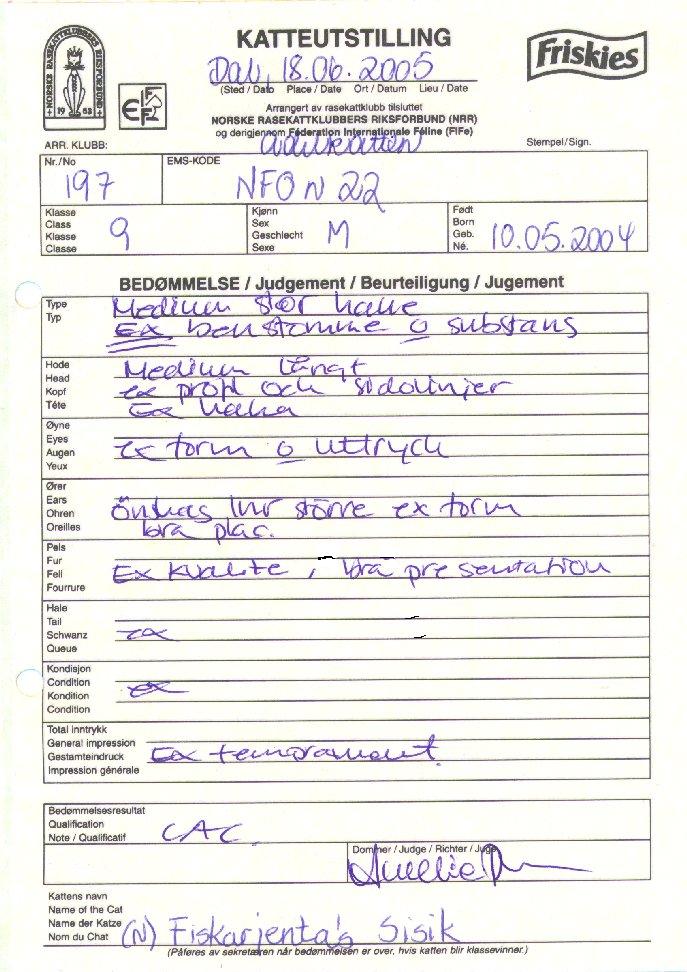 NORSKE RASEKATTKLUBBERS RIKSFORBUND
1953
KATTEUTSTILLING
Friskies
Dal, 18.06.2005
(Sted / Dato Place / Date Ort / Datum Lieu / Date
Arrangert av rasekattklubb tilsluttet
NORSKE RASEKATTKLUBBERS RIKSFORBUND (NRR)
og derigjennom Féderation Internationale Féline (FIFe)
ARR. KLUBB:
Adelkatten
Stempel/Sign.
Nr./No
197
EMS-KODE
NFO n 22
Klasse
Class
Klasse
Classe
9
Kjønn
Sex
Geschlecht
Sexe
M
Født
Born
Geb.
Né.
10.05.2004
BEDØMMELSE / Judgement / Beurteiligung / Jugement
Type
Typ
Medium stor hane
Ex benstomme o substans
Hode
Head
Kopf
Téte
Medium långt
ex profil och sidolinjer
Ex haka
Øyne
Eyes
Augen
Yeux
ex form o uttryck
Ører
Ears
Ohren
Oreilles
Önskas lite större ex form
bra plac.
Pels
Fur
Fell
Fourrure
Ex kvalite, bra presentation
Hale
Tail
Schwanz
Queue
ex
Kondisjon
Condition
Kondition
Condition
ex
Total inntrykk
General impression
Gestamteindruck
Impression générale
Ex temperament.
Bedømmelsesresultat
Qualification
Note / Qualificatif
CAC
Dommer / Judge / Richter / Juge
Kattens navn
Name of the Cat
Name der Katze
Nom du Chat
(N) Fiskarjenta's Sisik
(Påføres av sekretæren når bedømmelsen er over, hvis katten blir klassevinner.)